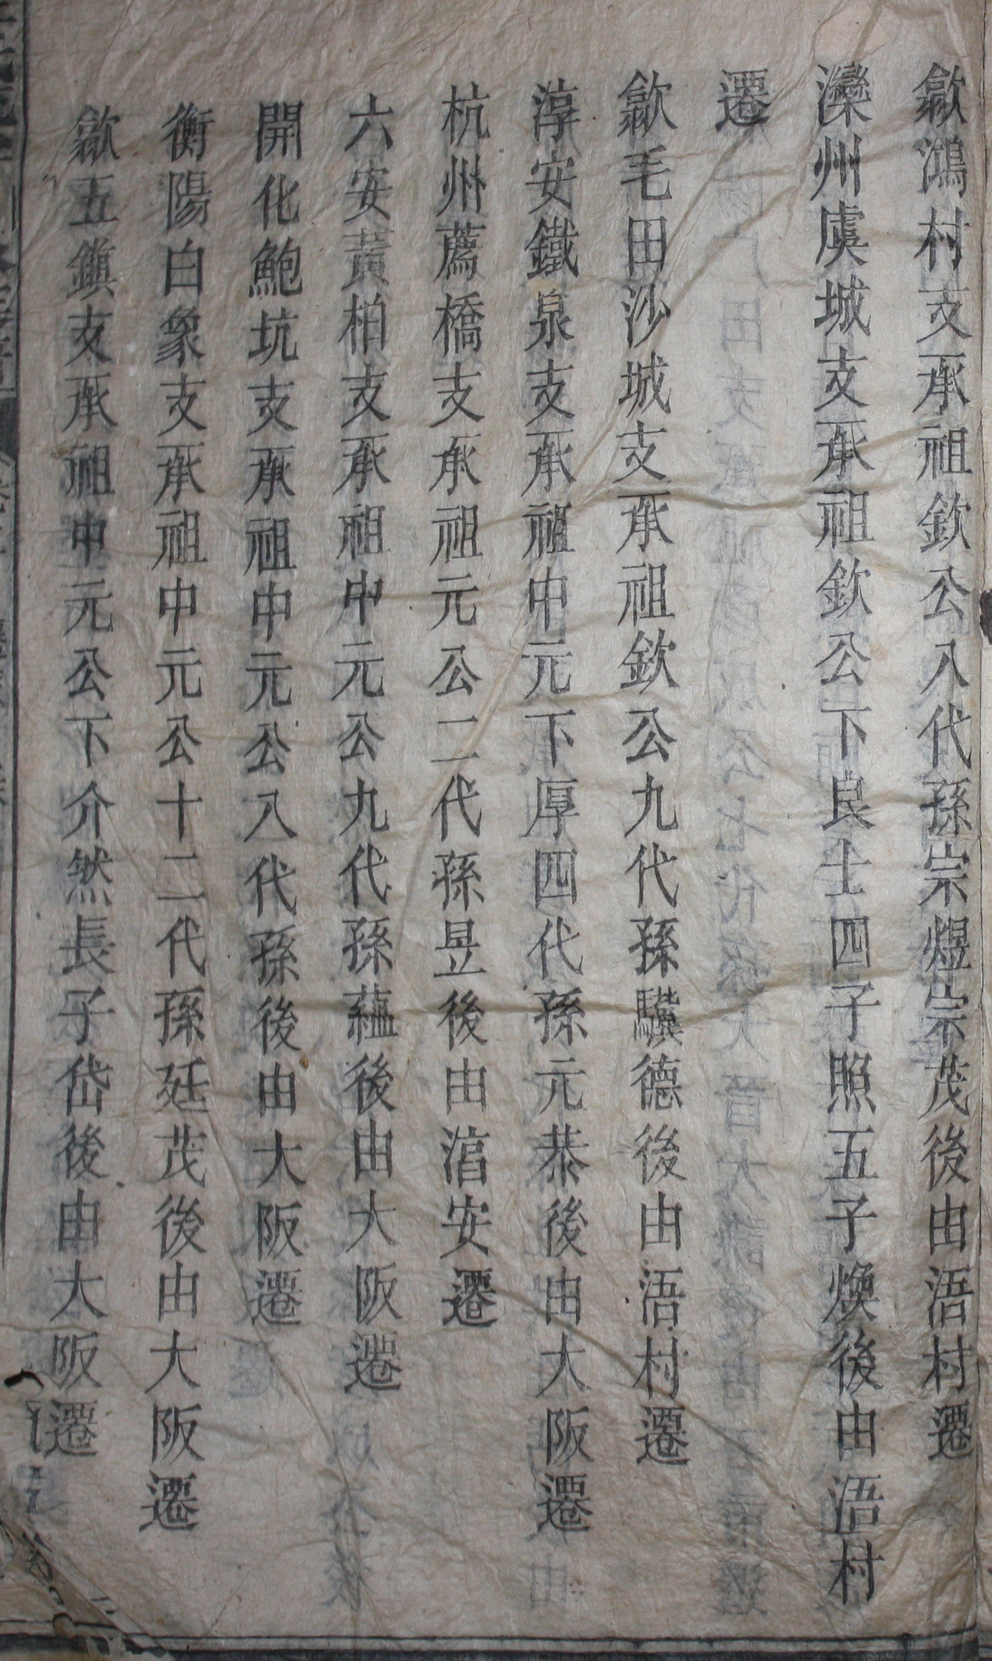 歙鴻村支承祖欽公八代孫宗煜宗茂後由浯村遷
灤州虞城支承祖欽公下良士四子照五子煥後由浯村
遷
歙毛田沙城支承祖欽公九代孫驥德後由浯村遷
淳安鐵泉支承祖中元下厚四代孫元恭後由大阪遷
杭州薦橋支承祖元公二代孫昱後由淯安遷
六安黃柏支承祖中元公九代孫蘊後由大阪遷
開化鮑坑支承祖中元公八代孫後由大阪遷
衡陽白象支承祖中元公十二代孫廷茂後由大阪遷
歙五鎮支承祖中元公下介然長子岱後由大阪遷